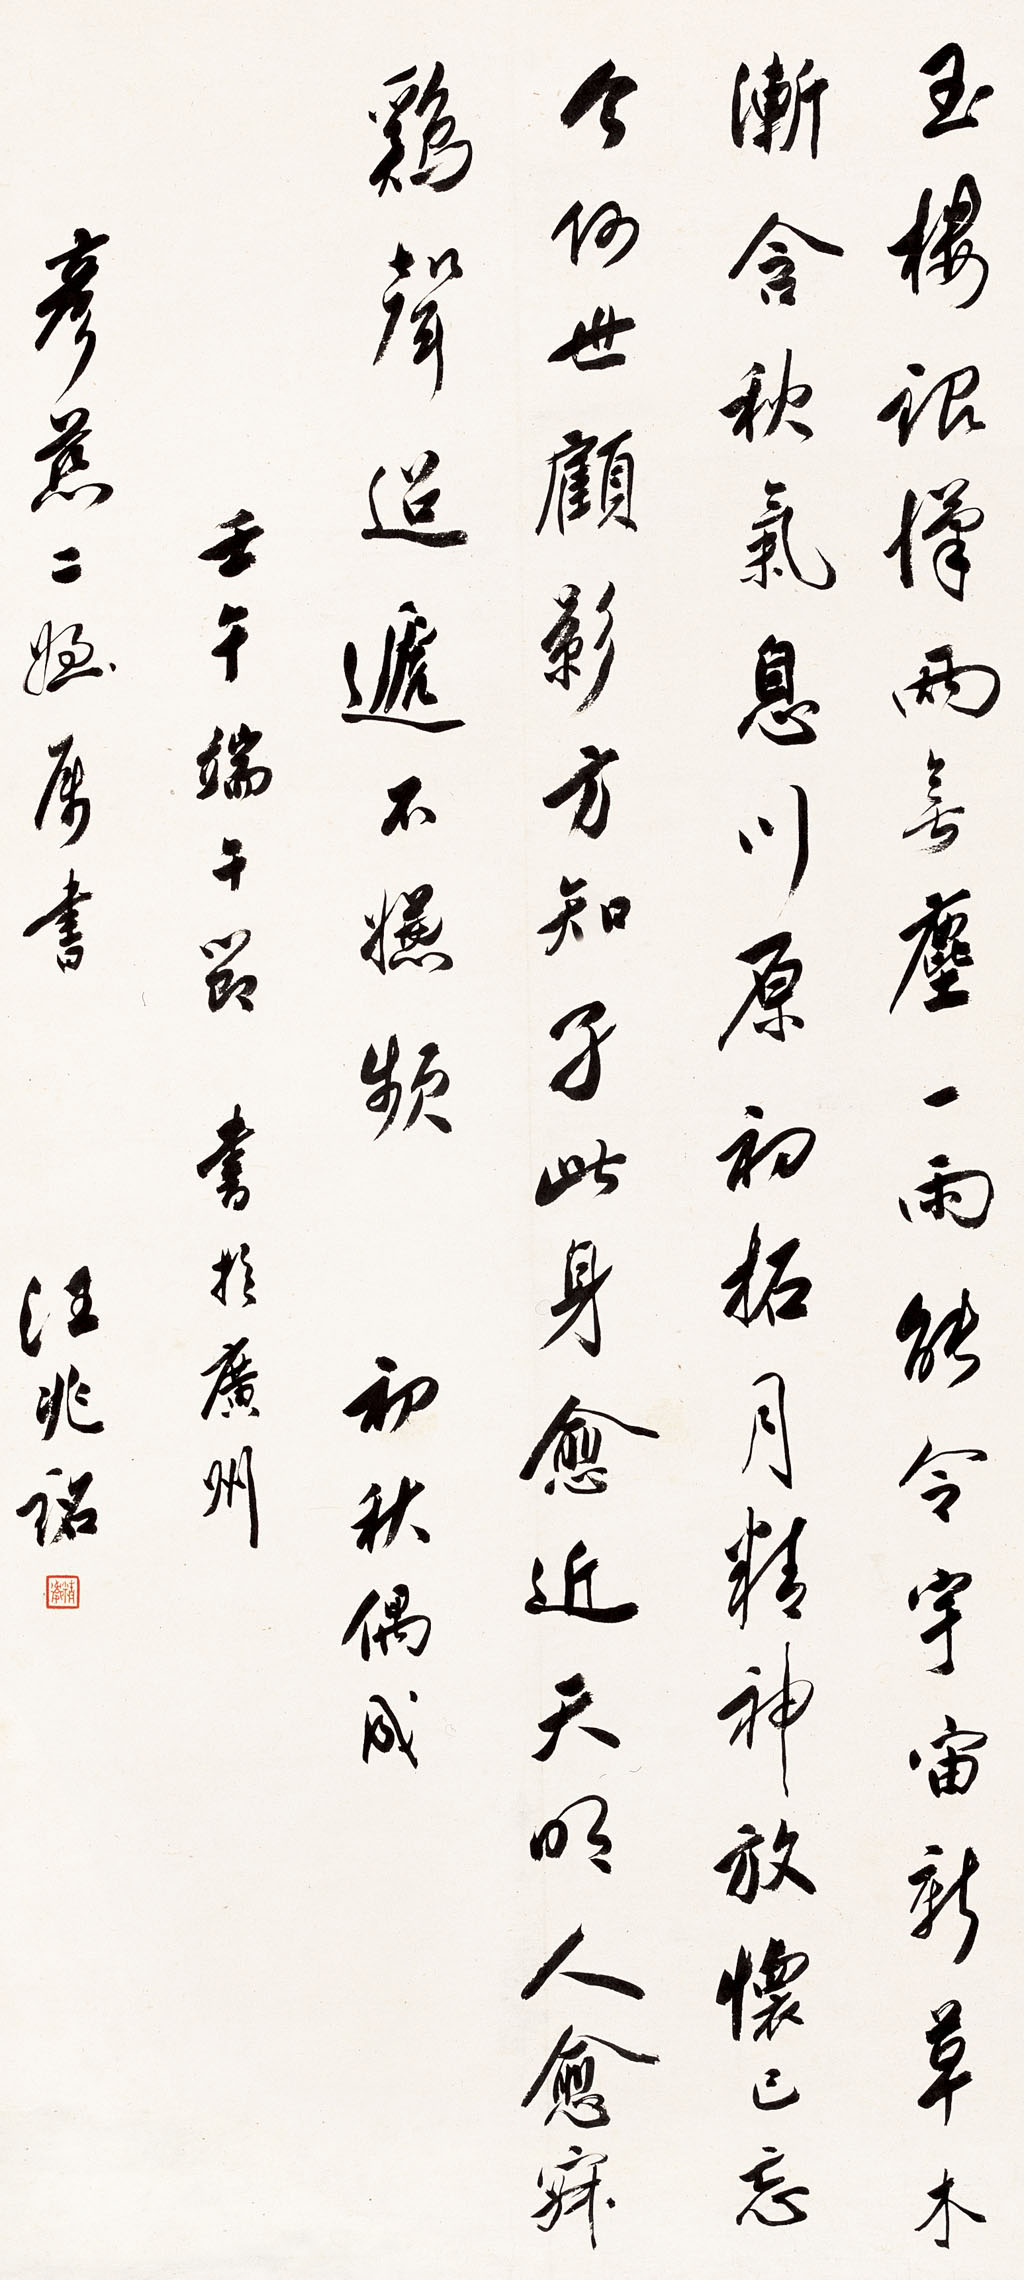 玉樓銀漢兩無塵一雨能令宇宙新草木
漸含秋氣息川原初拓月精神放懷已忘
今何世顧影方知孑此身愈近天明人愈寐
鷄聲迢遞不嫌頻 初秋偶成
壬午端午節 書於廣州
彥慈二属書 汪兆銘
精衛